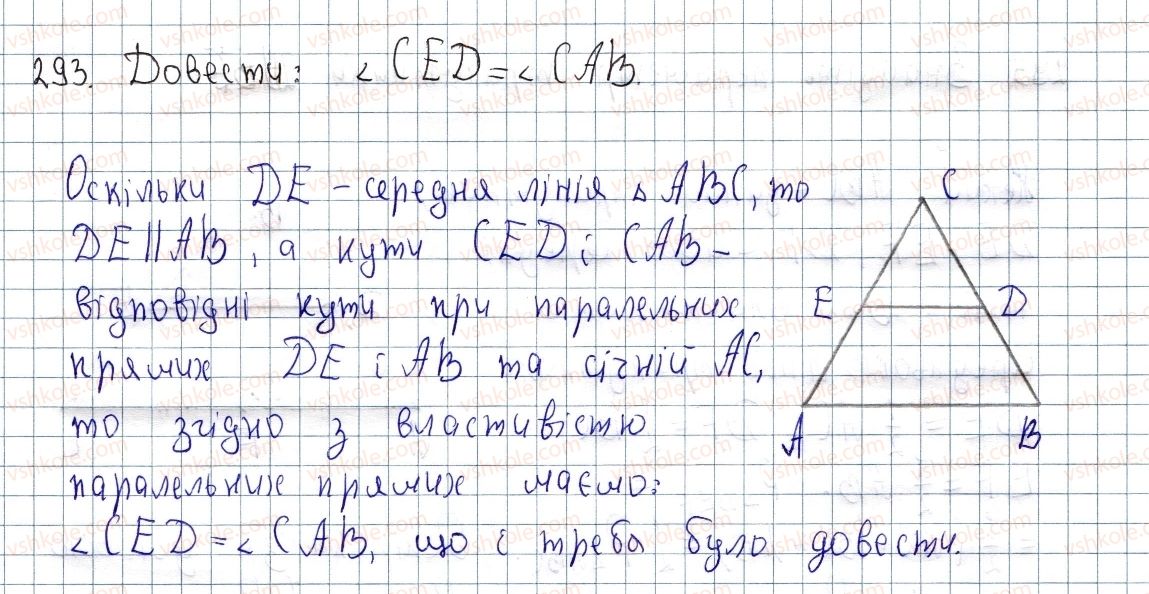 293. Довести: ∠CED = ∠CAB.
Оскільки DE – середня лінія △ ABC, то
DE||AB, а кути CED і CAB –
відповідні кути при паралельних
прямих DE і AB та січній AC,
то згідно з властивістю
паралельних прямих маємо:
∠CED = ∠CAB, що і треба було довести.
C
E D
A B